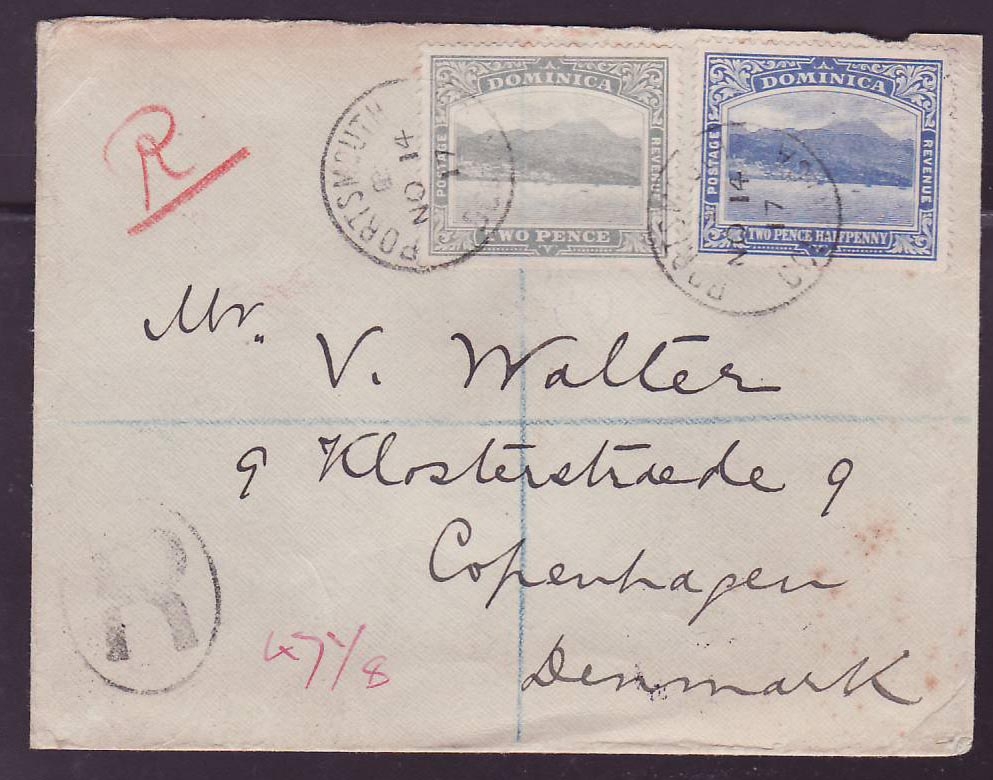 R
DOMINICA
POSTAGE
REVENUE
TWO PENCE
DOMINICA
POSTAGE
REVENUE
TWO PENCE HALFPENNY
PORTSMOUTH
NO 14
17
NO 14
17
Mr. V. Walter
9 Klosterstræde 9
Copenhagen
Denmark
R